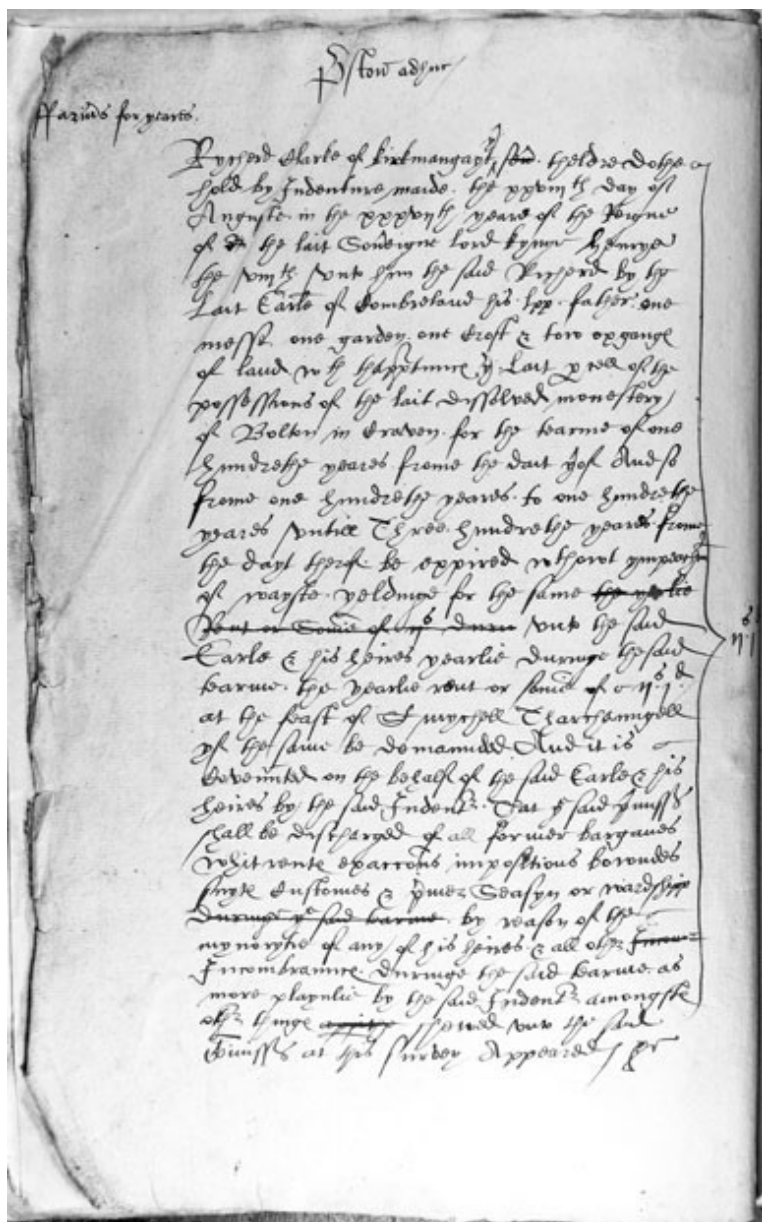 P'ston adhuc
ffarmes for yeares.
Rycherd Clarke of kirkmangayt, theldre dothe
hold by Indenture maide the xxviiith day of
Auguste in the xxxviith yeare of the Reigne
of the lait Soveigne lord kynge henrye
the viiith vnto him the said Richerd by the
Lait Earle of Combreland his lpp father one
messe one garden one croft & tow oxgange
of land wth thapptnnce lait pcell of the
possessions of the lait dissolved monestery
of Bolton in Craven for the tearme of one
hundrethe yeares frome the dait yrof And so
frome one hundrethe yeares to one hundrethe
yeares vntill Three hundrethe yeares frome
the dayt therof be expired wthowt
of wayste yeldinge for the same the yerlie
Rent or Some of vnto the said
Earle & his heires yearlie duringe the said
tearme the yearlie rent or some of ijs jd
at the feast of St mychell Tharchanngell
yf the same be demannded And it is
Covennted on the behalf of the said Earle & his
heires by the said Indentr That ye said pmisss
shall be discharged of all former barganes
Whitrente exaccons impositions
suyte Customes & Seasyn or wardshipp
duringe ye said tearme by reason of the
mynorytie of any of his heires & all other
Incombrannce duringe the said tearme as
more playnlie by the said Indentr amongste
other thinge shewed vnto the said
at this survey Appeared
ijs jd